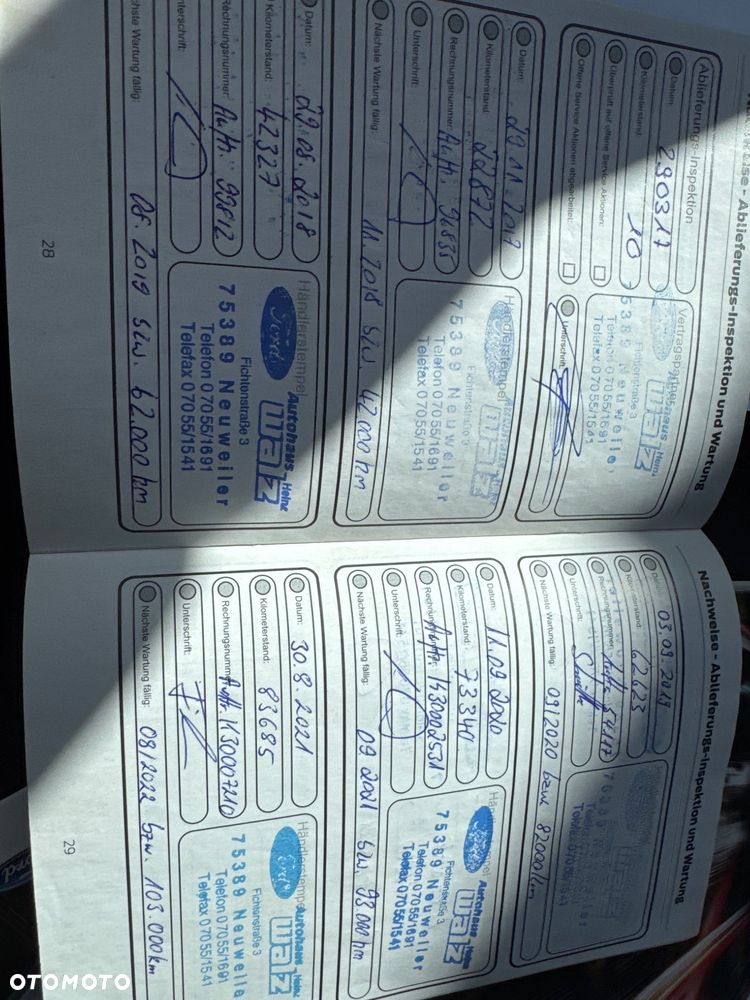 Nachweise - Ablieferungs-Inspektion und Wartung
Ablieferungs-Inspektion
Datum:
290317
Kilometerstand:
10
Überprüft auf offene Service Aktionen:
Offene Service Aktionen abgearbeitet:
Vertragspartner
Autohaus
Heinz
Fichtenstraße 3
75389 Neuweiler
Telefon 07055/1691
Telefax 07055/1541
Unterschrift:
Datum:
Kilometerstand:
22872
Rechnungsnummer:
Auftr. 96835
Unterschrift:
Nächste Wartung fällig:
11.2018 bzw. 42000 km
Händlerstempel
Autohaus
Fichtenstraße 3
75389 Neuweiler
Telefon 07055/1691
Telefax 07055/1541
Datum:
29.08.2018
Kilometerstand:
42327
Rechnungsnummer:
Auftr. 99812
Unterschrift:
Nächste Wartung fällig:
08.2019 bzw. 62.000 km
Händlerstempel
Ford
Autohaus
Heinz
Fichtenstraße 3
75389 Neuweiler
Telefon 07055/1691
Telefax 07055/1541
28
Nachweise - Ablieferungs-Inspektion und Wartung
03.09.2019
Kilometerstand:
62623
Rechnungsnummer:
Unterschrift:
Nächste Wartung fällig:
09/2020 bzw 82000 km
75389 Neuweiler
Datum:
11.09.2020
Kilometerstand:
73340
Rechnungsnummer:
Auftr. 1430002531
Unterschrift:
Nächste Wartung fällig:
09 2021 bzw. 93000 km
Händlerstempel
Ford
Autohaus
Heinz
Fichtenstraße 3
75389 Neuweiler
Telefon 07055/1691
Telefax 07055/1541
Datum:
30.8.2021
Kilometerstand:
83685
Rechnungsnummer:
Auftr. K30007210
Unterschrift:
Nächste Wartung fällig:
08/2022 bzw. 103.000 km
Händlerstempel
Ford
Autohaus
Heinz
Fichtenstraße 3
75389 Neuweiler
Telefon 07055/1691
Telefax 07055/1541
29
OTOMOTO